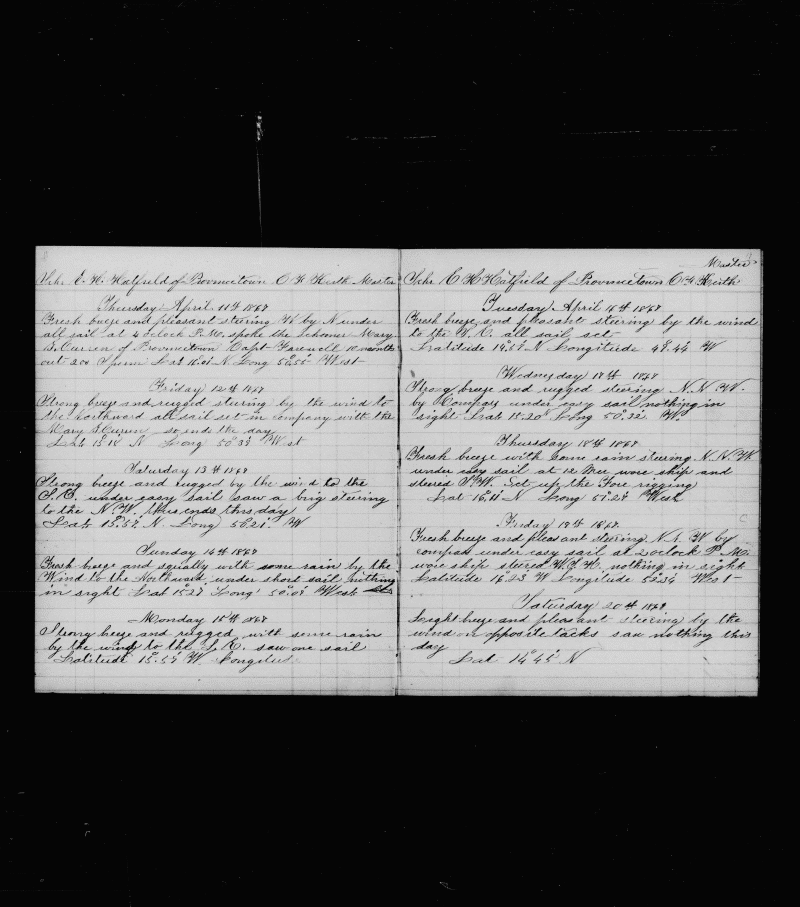 Schr E. H. Hatfield of Provincetown O F Keith Master
Thursday April 11th 1867
Fresh breeze and pleasant steering W by N under
all sail at 4 oclock P.M. spoke the Schoner Mary
of Provincetown Capt 10 months
out 200 Sperm Lat 16°01 N Long 50°55 West
Friday 12th 1867
Strong breeze and rugged stering by the wind to
the northward all sail set in company with the
Mary so ends the day
Lat 15°14 N Long 50°33 West
Saturday 13th 1867
Strong breeze and rugged by the wind to the
S.E. under easy sail saw a brig steering
to the N.W. thus ends this day
Lat 15°57 N Long 50°21 W
Sunday 14th 1867
Fresh breeze and squally with some rain by the
Wind to the Northward under short sail nothing
in sight Lat 15°27 Long 50°07 West
Monday 15th 1867
Strong breeze and rugged with some rain
by the wind to the S.E. saw one sail
Latitude 15°57 W Longitud
Master
Schr E H Hatfield of Provincetown O F Keith
Tuesday April 16th 1867
Fresh breeze and pleasant steering by the wind
to the all sail set
Latitude 14°57 N Longitiede 49°44 W
Wednesday 17th 1867
Strong breeze and rugged steering N.N.W.
by Compass under easy sail nothing in
sight Lat 15°20 Long 50°32 W.
Thursday 18th 1867
Fresh breeze with some rain steering N.N.W
under easy sail at 12 wore ship and
steered S.W. Set up the Fore rigging
Lat 16°11 N Long 51°27 West
Friday 19th 1867
Fresh breeze and pleasant steering N.N.W by
compass under easy sail at 2 oclock P.M.
wore ship steered nothing in sight
Latitude 16°23 W Longitude 52°34 West
Saturday 20th 1867
Leight breeze and pleasant steering by the
wind on opposite tacks saw nothing this
day
Lat 14°45 N